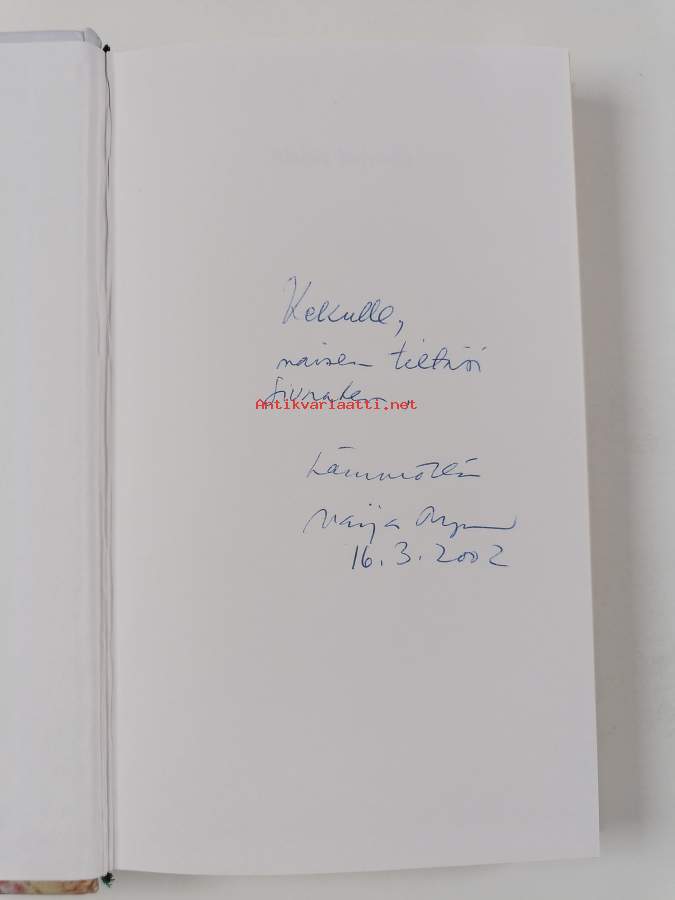 Kekulle,
naisen tietäsi
siunaten.
Antikvariaatti.net
Lämmöllä
Maija
16.3.2002